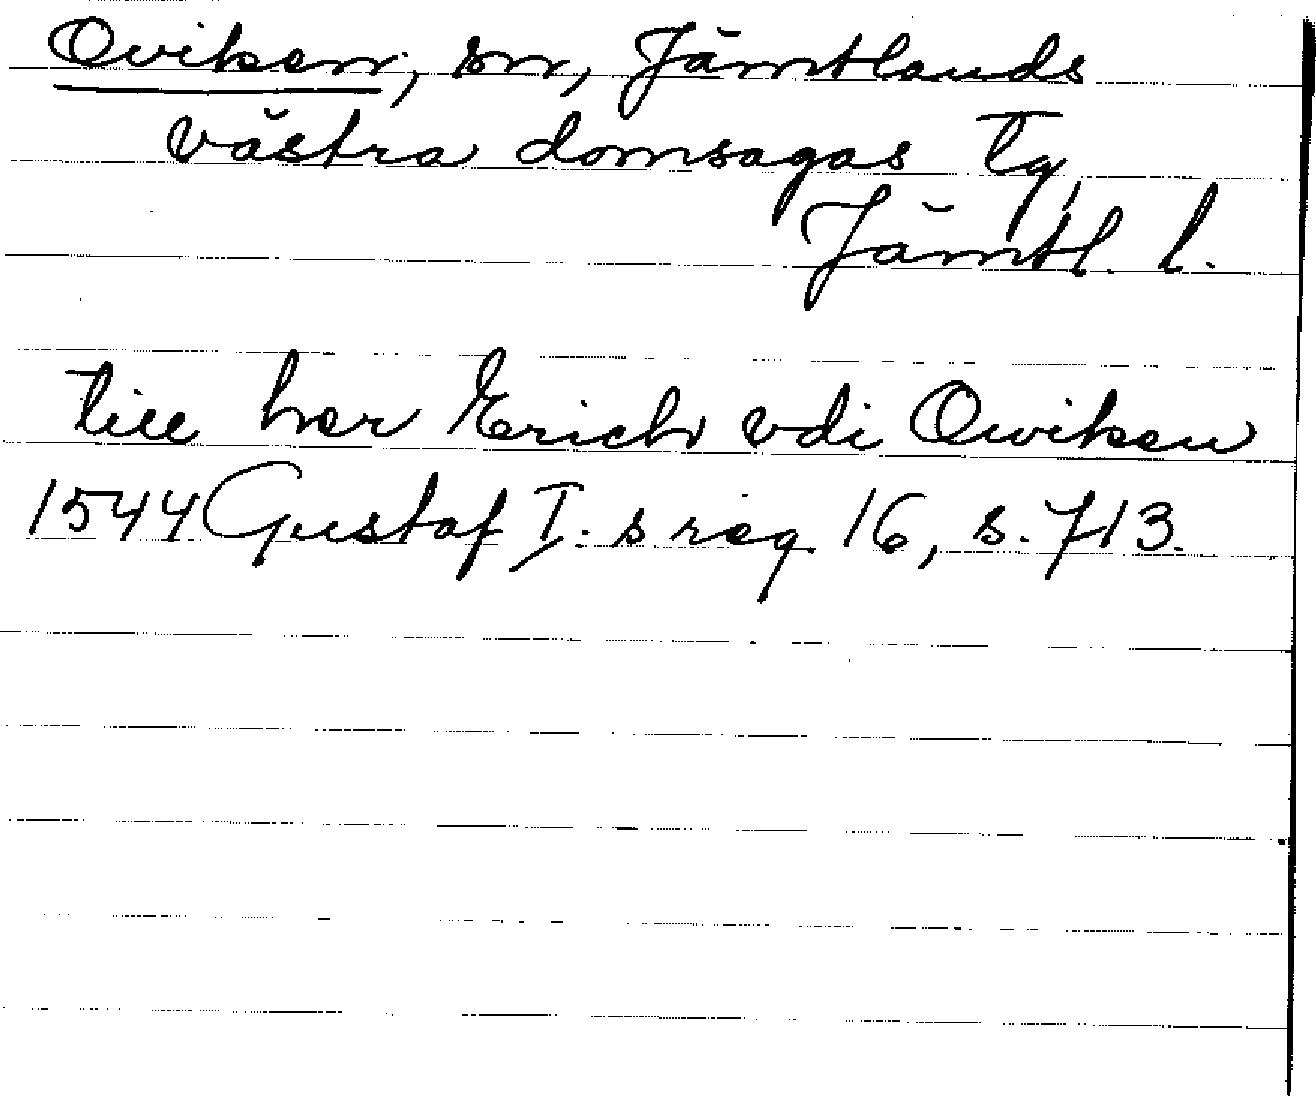 Oviken, sn, Jämtlands
västra domsagas tg,
Jämtl. l.
till her Erich vdi Owiken
1544 Gustaf I:s reg 16, s. 713.